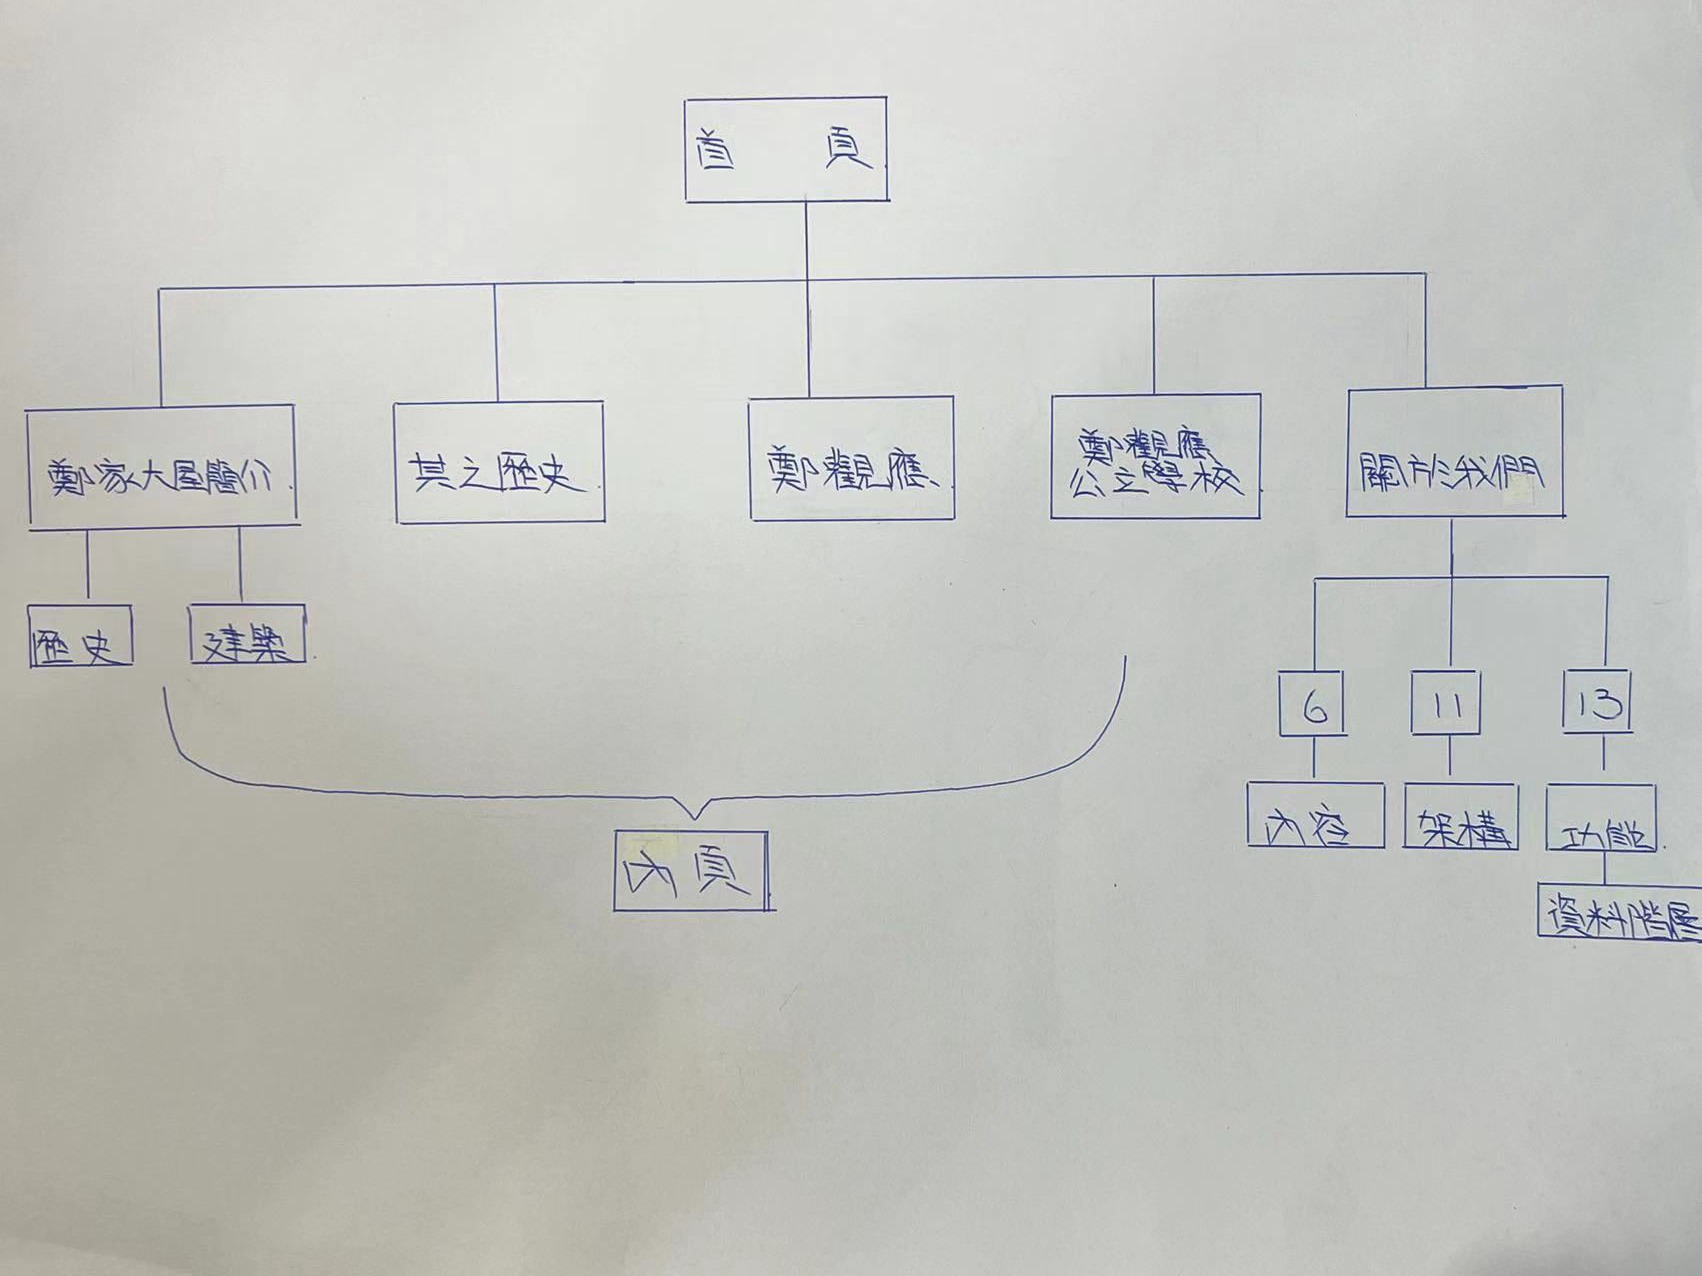 首頁
鄭家大屋簡介
其之歷史
鄭觀應
鄭觀應
公立學校
關於我們
歷史
建築
6
11
13
內容
架構
功能
資料階層
內頁